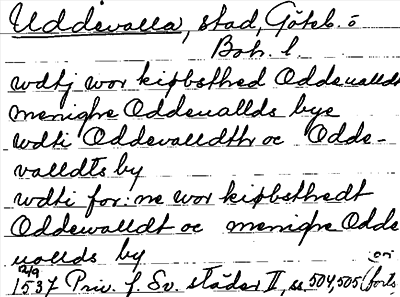 Uddevalla, stad, Göteb. o
Boh. l.
wdtj wor kiøbsthed Oddeualldt
menighe Oddeuallds bye
wdti Oddevalldthr oc Odde-
valldts by
wdti for:ne wor kiøbsthedt
Oddewalldt oc menighe Odde
uallds by
21/9 en
1537 Priv. f. Sv. städer II, ss. 504, 505 (forts.